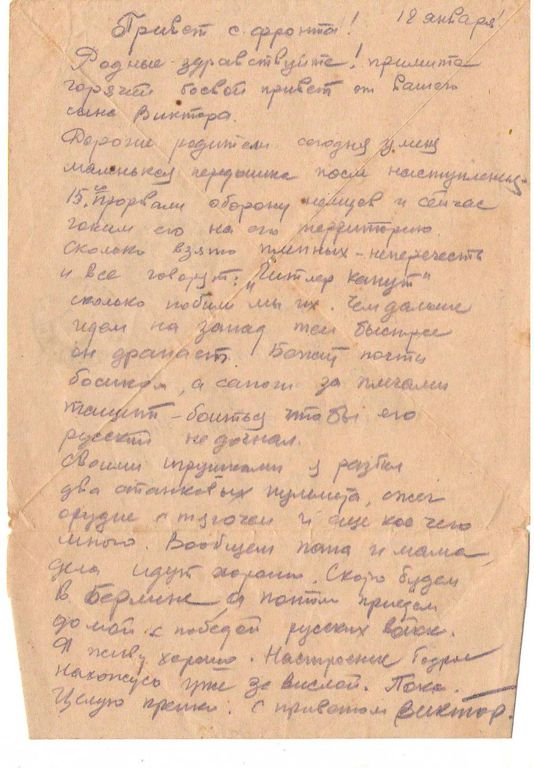 Привет с фронта! 18 января!
Родные здравствуйте! примите
горячий боевой привет от вашего
сына Виктора.
Дорогие родители сегодня у меня
маленькая передышка после наступления.
15.го прорвали оборону немцев и сейчас
гоним его на его территорию
сколько взято пленных - неперечесть
и все говорут: "Гитлер капут"
сколько побили мы их. Чем дальше
идем на запад тем быстрее
он драпает. Бежит почти
босиком, а сапоги за плечами
тащит - боиться что бы его
русский не догнал.
Своими я разбил
два станковых пулемета, сжег
орудие с тягочем и еще кое чего
много. Вообщем папа и мама,
дела идут хорошо. Скоро будем
в Берлине а потом приедем
домой с победой русских войск.
Я живу хорошо. Настроение бодрое
нахожусь уже за Вислой. Пока.
Целую крепко. С приветом Виктор.